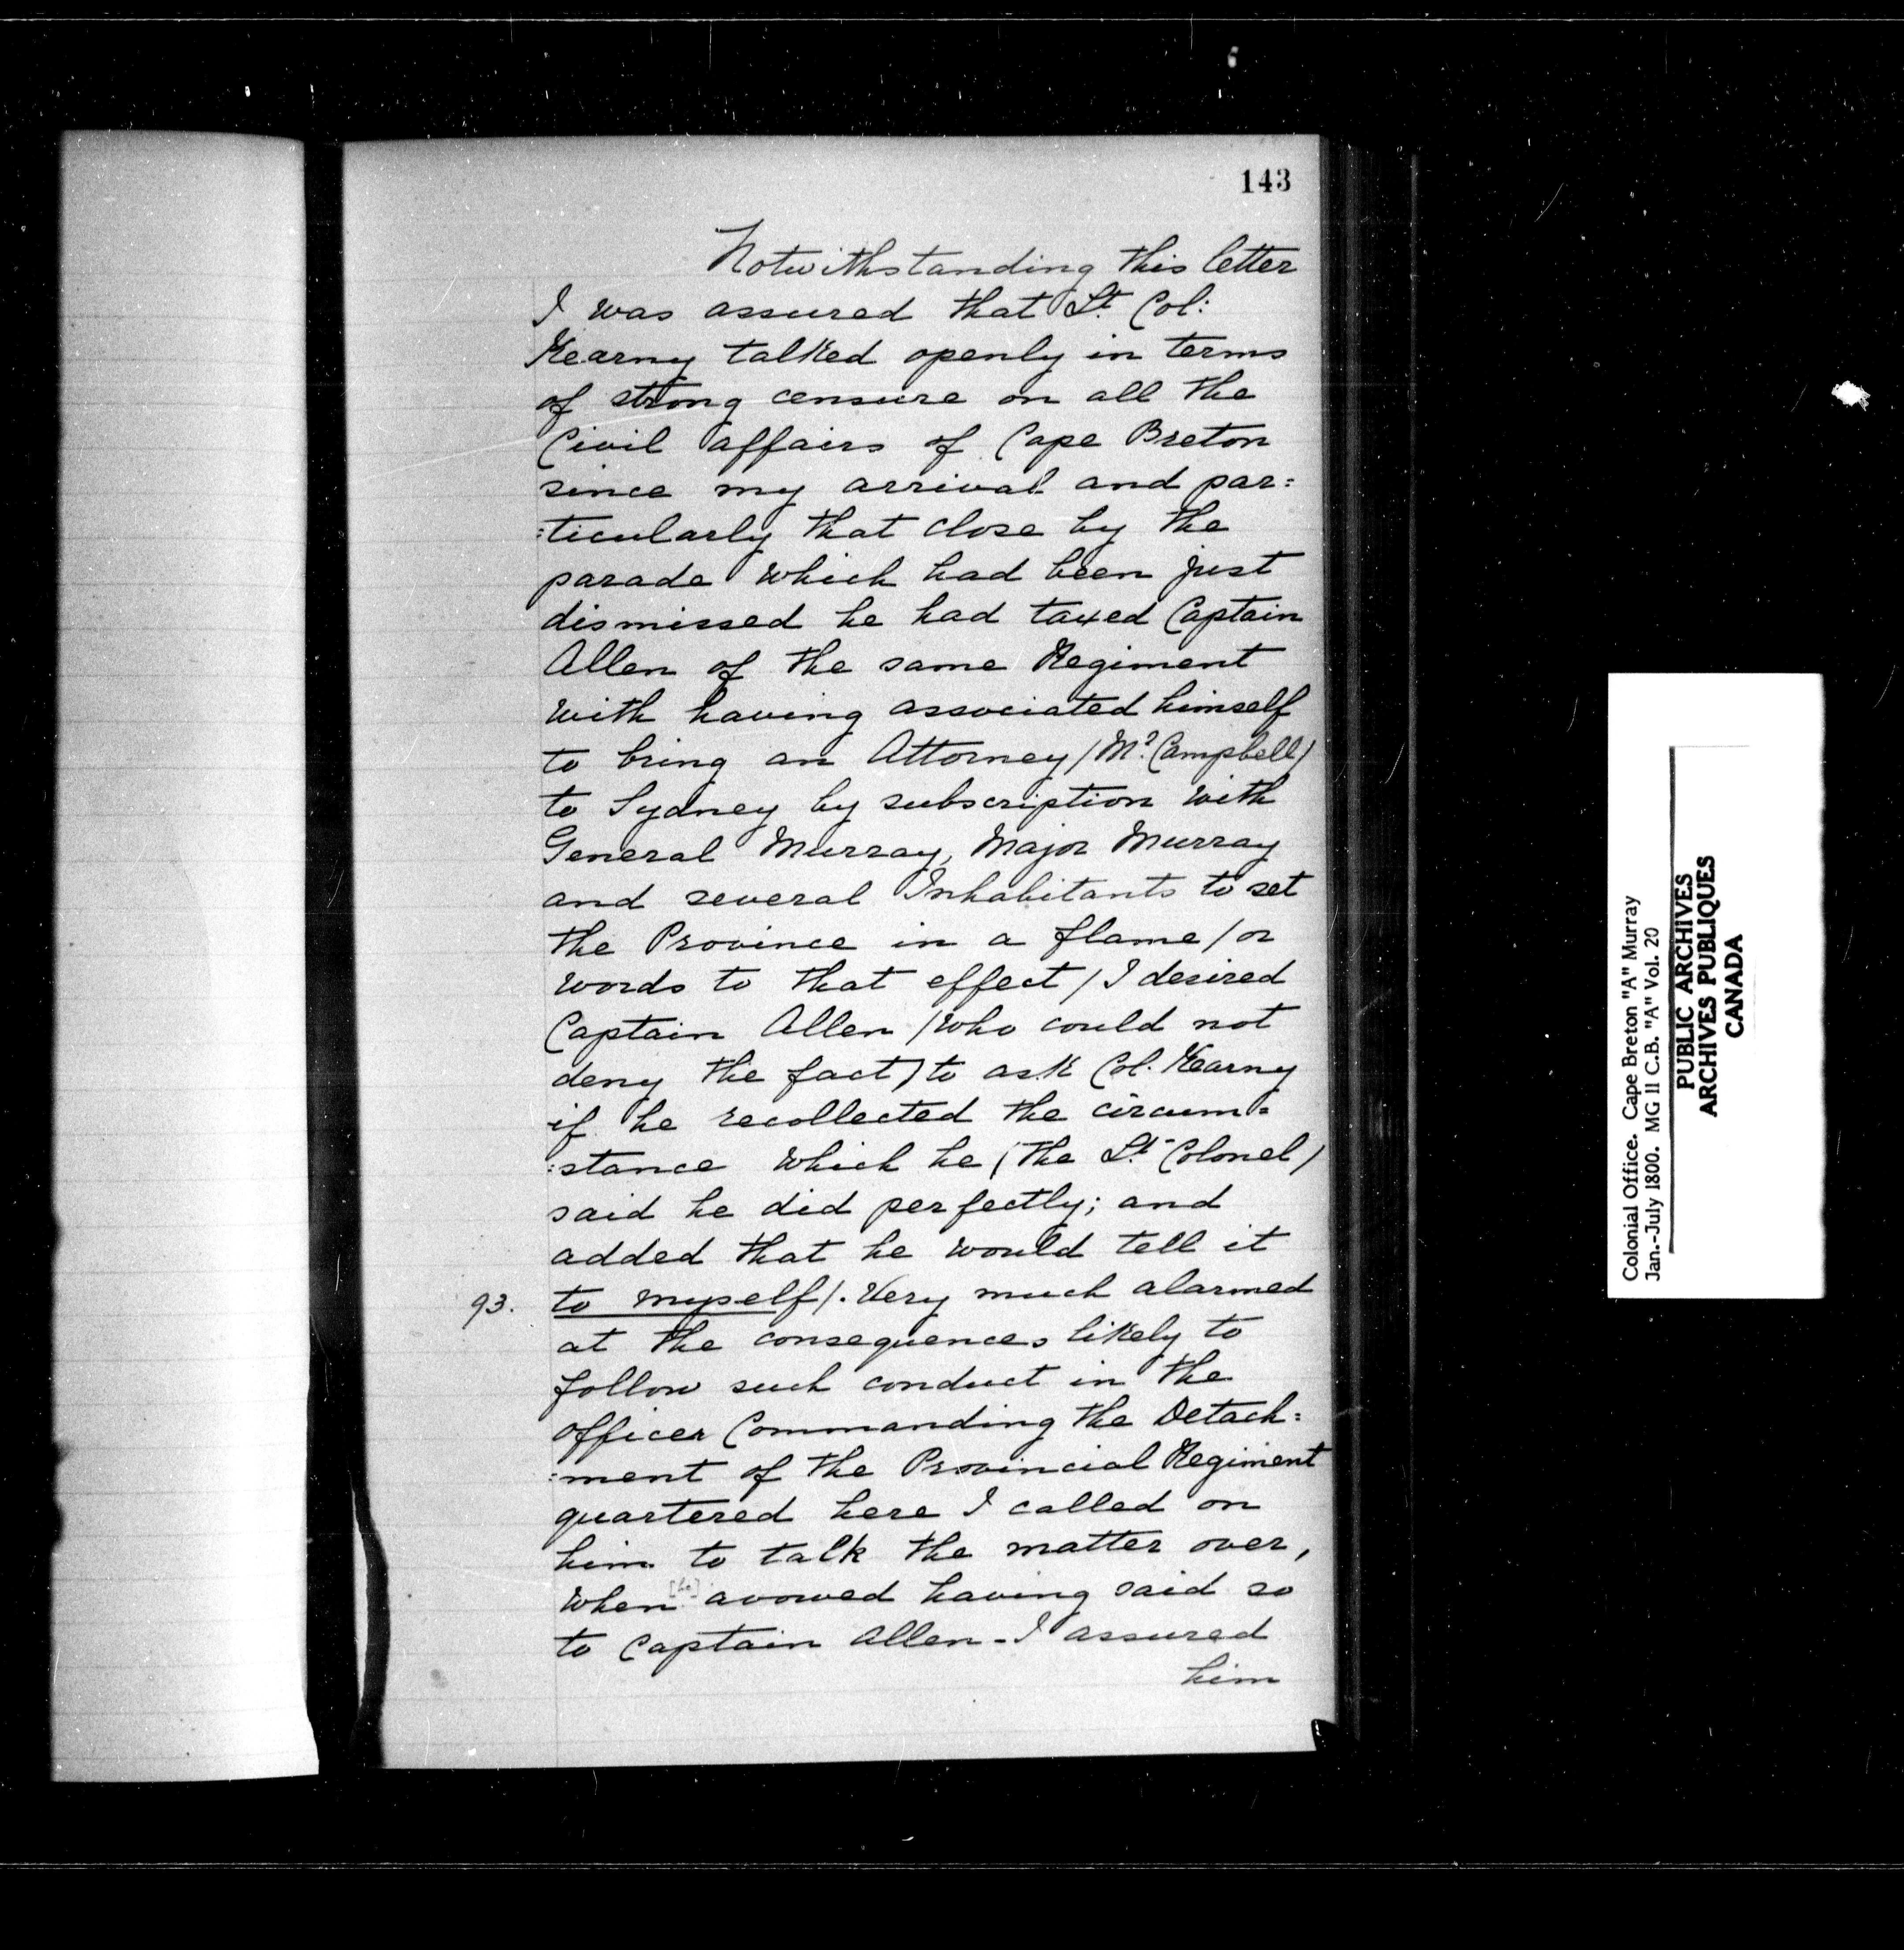 143
Notwithstanding this letter
I was assured that Lt. Col:
Kearny talked openly in terms
of strong censure on all the
Civil affairs of Cape Breton
since my arrival and par=
=ticularly that close by the
parade which had been just
dismissed he had taxed Captain
Allen of the same Regiment
with having associated himself
to bring an Attorney /Mr. Campbell/
to Sydney by subscription with
General Murray, Major Murray
and several Inhabitants to set
the Province in a flame / or
words to that effect / I desired
Captain Allen / who could not
deny the fact) to ask Col. Kearny
if he recollected the circum=
:stance which he (the Lt. Colonel /
said he did perfectly; and
added that he would tell it
93. to myself/. Very much alarmed
at the consequences likely to
follow such conduct in the
officer Commanding the Detach=
:ment of the Provincial Regiment
quartered here I called on
him to talk the matter over,
when [he] avowed having said so
to Captain Allen - I assured
him
Colonial Office. Cape Breton "A" Murray
Jan.-July 1800. MG 11 C.B. "A" Vol. 20
PUBLIC ARCHIVES
ARCHIVES PUBLIQUES
CANADA